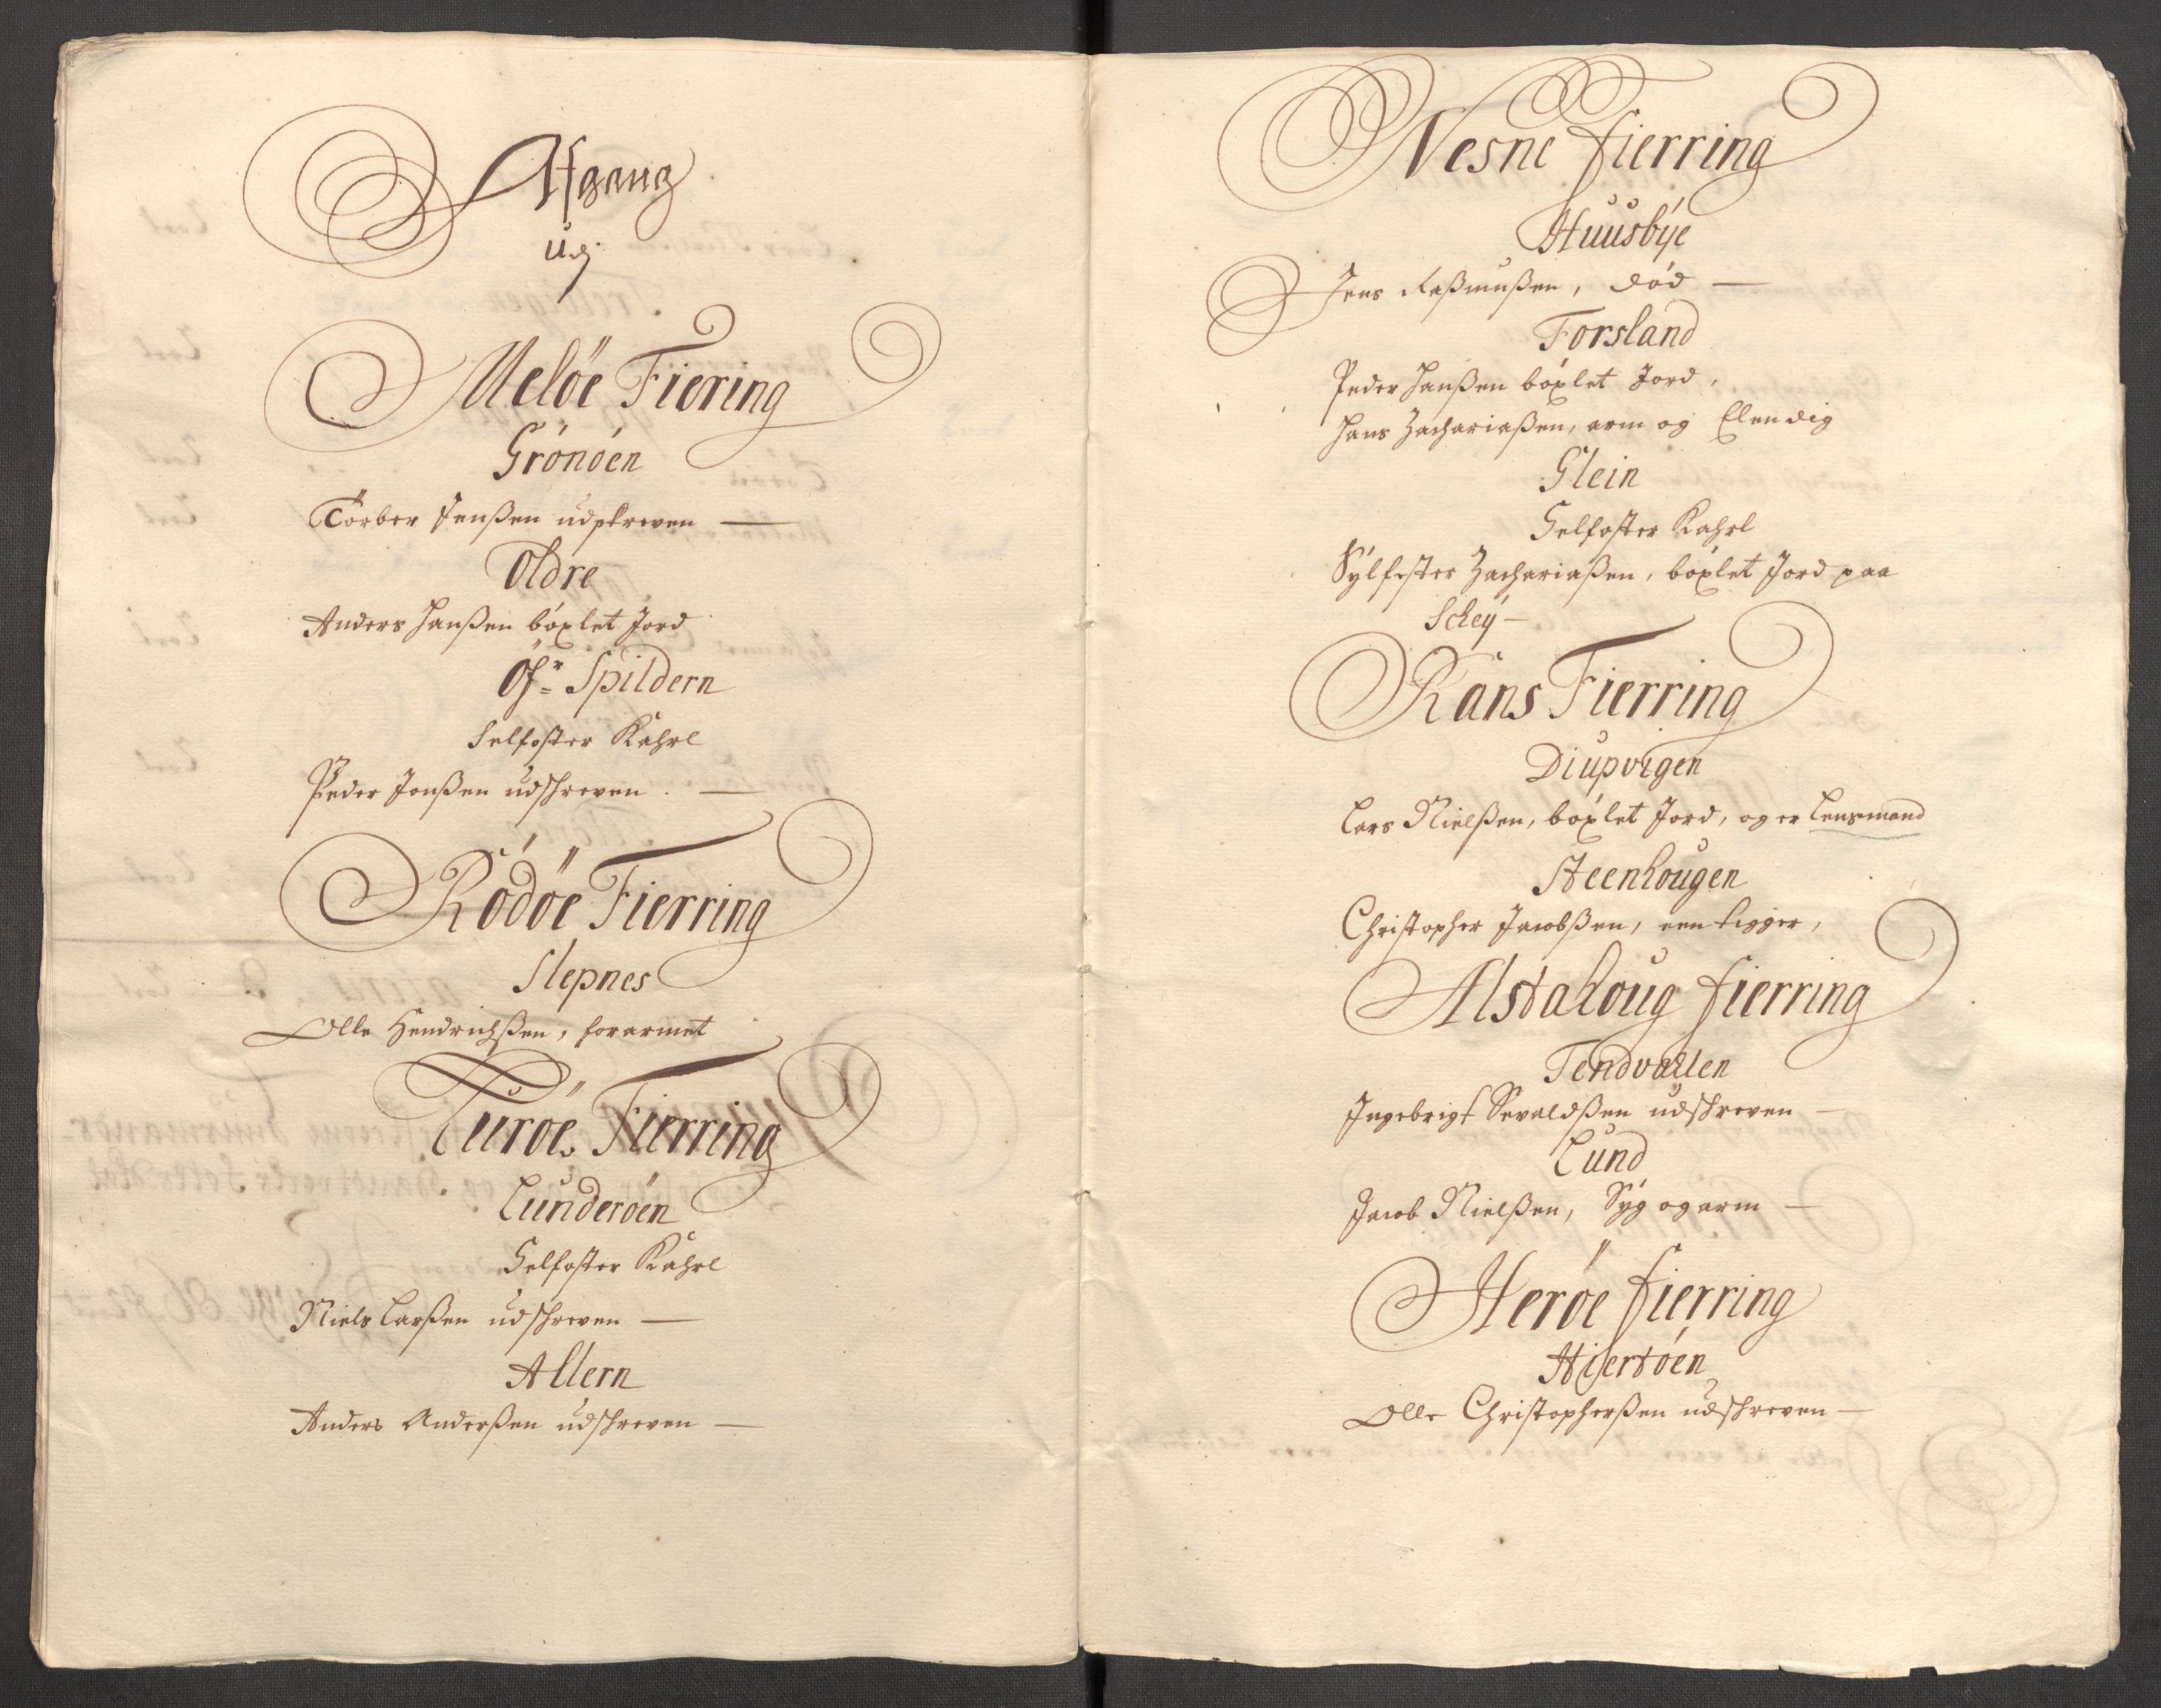 Afgang
udj
Meløe Fiering
Grönöen
Torber Jenßen udskreven —
Oldre
Anders Hanßen böxlet Jord
Öfr= Spildern
Selfoster Kahrl
Peder Jonßen udschreven . —
Rödöe Fierring
Slepnes
Olle Hendrichßen, forarmet
Luröe Fierring
Lunderöen
Selfoster Kahrl
Niels Larßen udschreven —
Altern
Anders Anderßen udschreven —
Nesne fierring
Huusbÿe
Jens Raßmußen, död —
Forsland
Peder Hanßen böxlet Jord,
Hans Zachariaßen, arm og Elendig
Glein
Selfoster Kahrl
Sÿlfester Zachariaßen, böxlet Jord paa
Schey —
Rans Fierring
Diupvigen
Lars Nielßen, böxlet Jord, og er Lensmand
Steenhougen
Christopher Jacobßen, een tigger,
Alstahoug fierring
Tendvallen
Ingebrigt Sevaldßen udschreven —
Lund
Jacob Nielßen, Sÿg og arm —
Heröe fierring
Hiertöen
Olle Christopherßen udschreven —